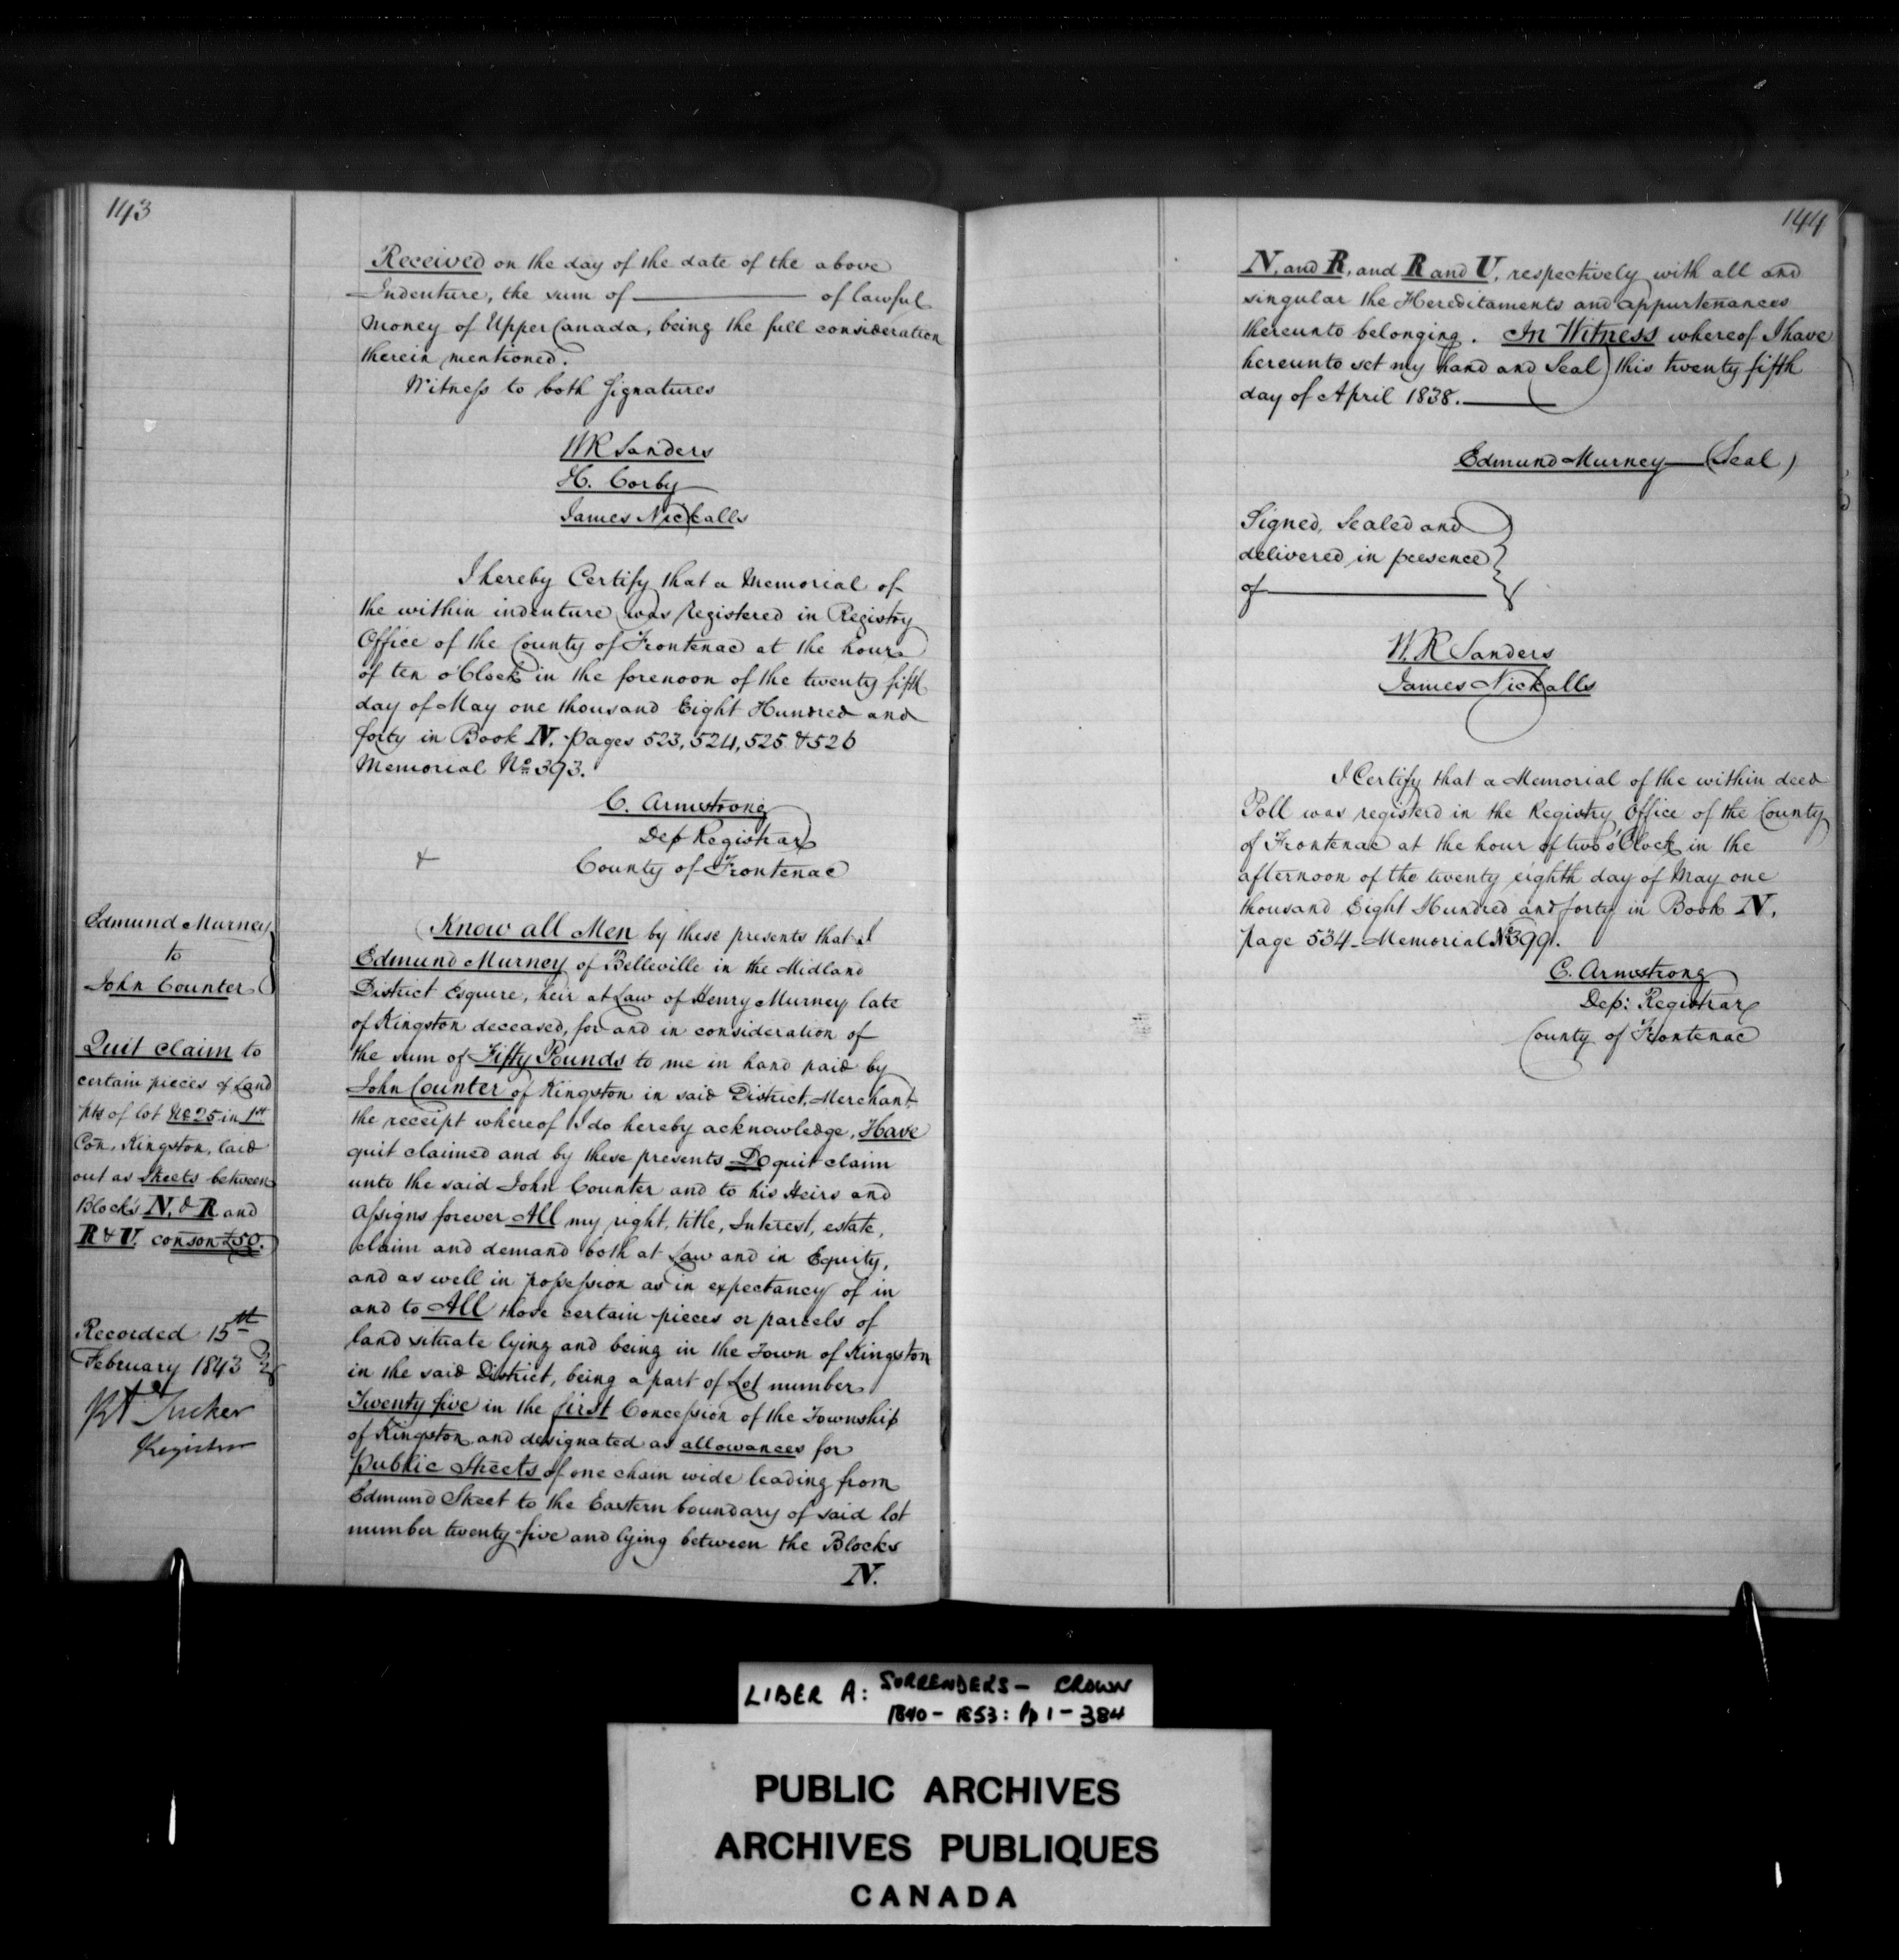 143
Received on the day of the date of the above
Indenture, the sum of ———— of lawful
Money of Upper Canada, being the full consideration
therein mentioned.
Witness to both Signatures
W R Sanders
H. Corby
James Nickalls
I hereby Certify that a Memorial of
the within indenture was registered in Registry
Office of the County of Frontenac at the hour
of ten o'Clock in the forenoon of the twenty fifth
day of May one thousand Eight Hundred and
forty in Book N. pages 523, 524, 525 & 526
Memorial No 393.
C. Armstrong
Dep Registrar
County of Frontenac
Edmund Murney
to
John Counter
Quit claim to
certain pieces of Land
pts of lot No 25 in 1st
Con. Kingston, laid
out as Streets between
Blocks N. & R and
R & U. conson £50.
Recorded 15th
February 1843
RA Tucker
Registrar
Know all Men by these presents that I
Edmund Murney of Belleville in the Midland
District Esquire, heir at Law of Henry Murney late
of Kingston deceased, for and in consideration of
the sum of Fifty Pounds to me in hand paid by
John Counter of Kingston in said District, Merchant,
the receipt whereof I do hereby acknowledge, Have
quit claimed and by these presents Do quit claim
unto the said John Counter and to his Heirs and
Assigns forever All my right, title, Interest, estate,
claim and demand both at Law and in Equity,
and as well in possession as in expectancy of in
and to All those certain pieces or parcels of
land situate lying and being in the Town of Kingston
in the said District, being a part of Lot number
Twenty five in the first Concession of the Township
of Kingston and designated as allowances for
public Streets of one chain wide leading from
Edmund Street to the Eastern boundary of said lot
number twenty five and lying between the Blocks
N.
144
N. and R, and R and U, respectively with all and
singular the Hereditaments and appurtenances
thereunto belonging. In Witness whereof I have
hereunto set my hand and Seal this twenty fifth
day of April 1838.
Edmund Murney (Seal)
Signed, Sealed and
delivered in presence
of
W. R Sanders
James Nickalls
I Certify that a Memorial of the within deed
Poll was registerd in the Registry Office of the County
of Frontenac at the hour of two o'Clock in the
afternoon of the twenty eighth day of May one
thousand Eight Hundred and forty in Book N.
page 534 - Memorial No 399.
C. Armstrong
Dep: Registrar
County of Frontenac
LIBER A: SURRENDERS - CROWN
1840 - 1853: Pp 1 - 384
PUBLIC ARCHIVES
ARCHIVES PUBLIQUES
CANADA